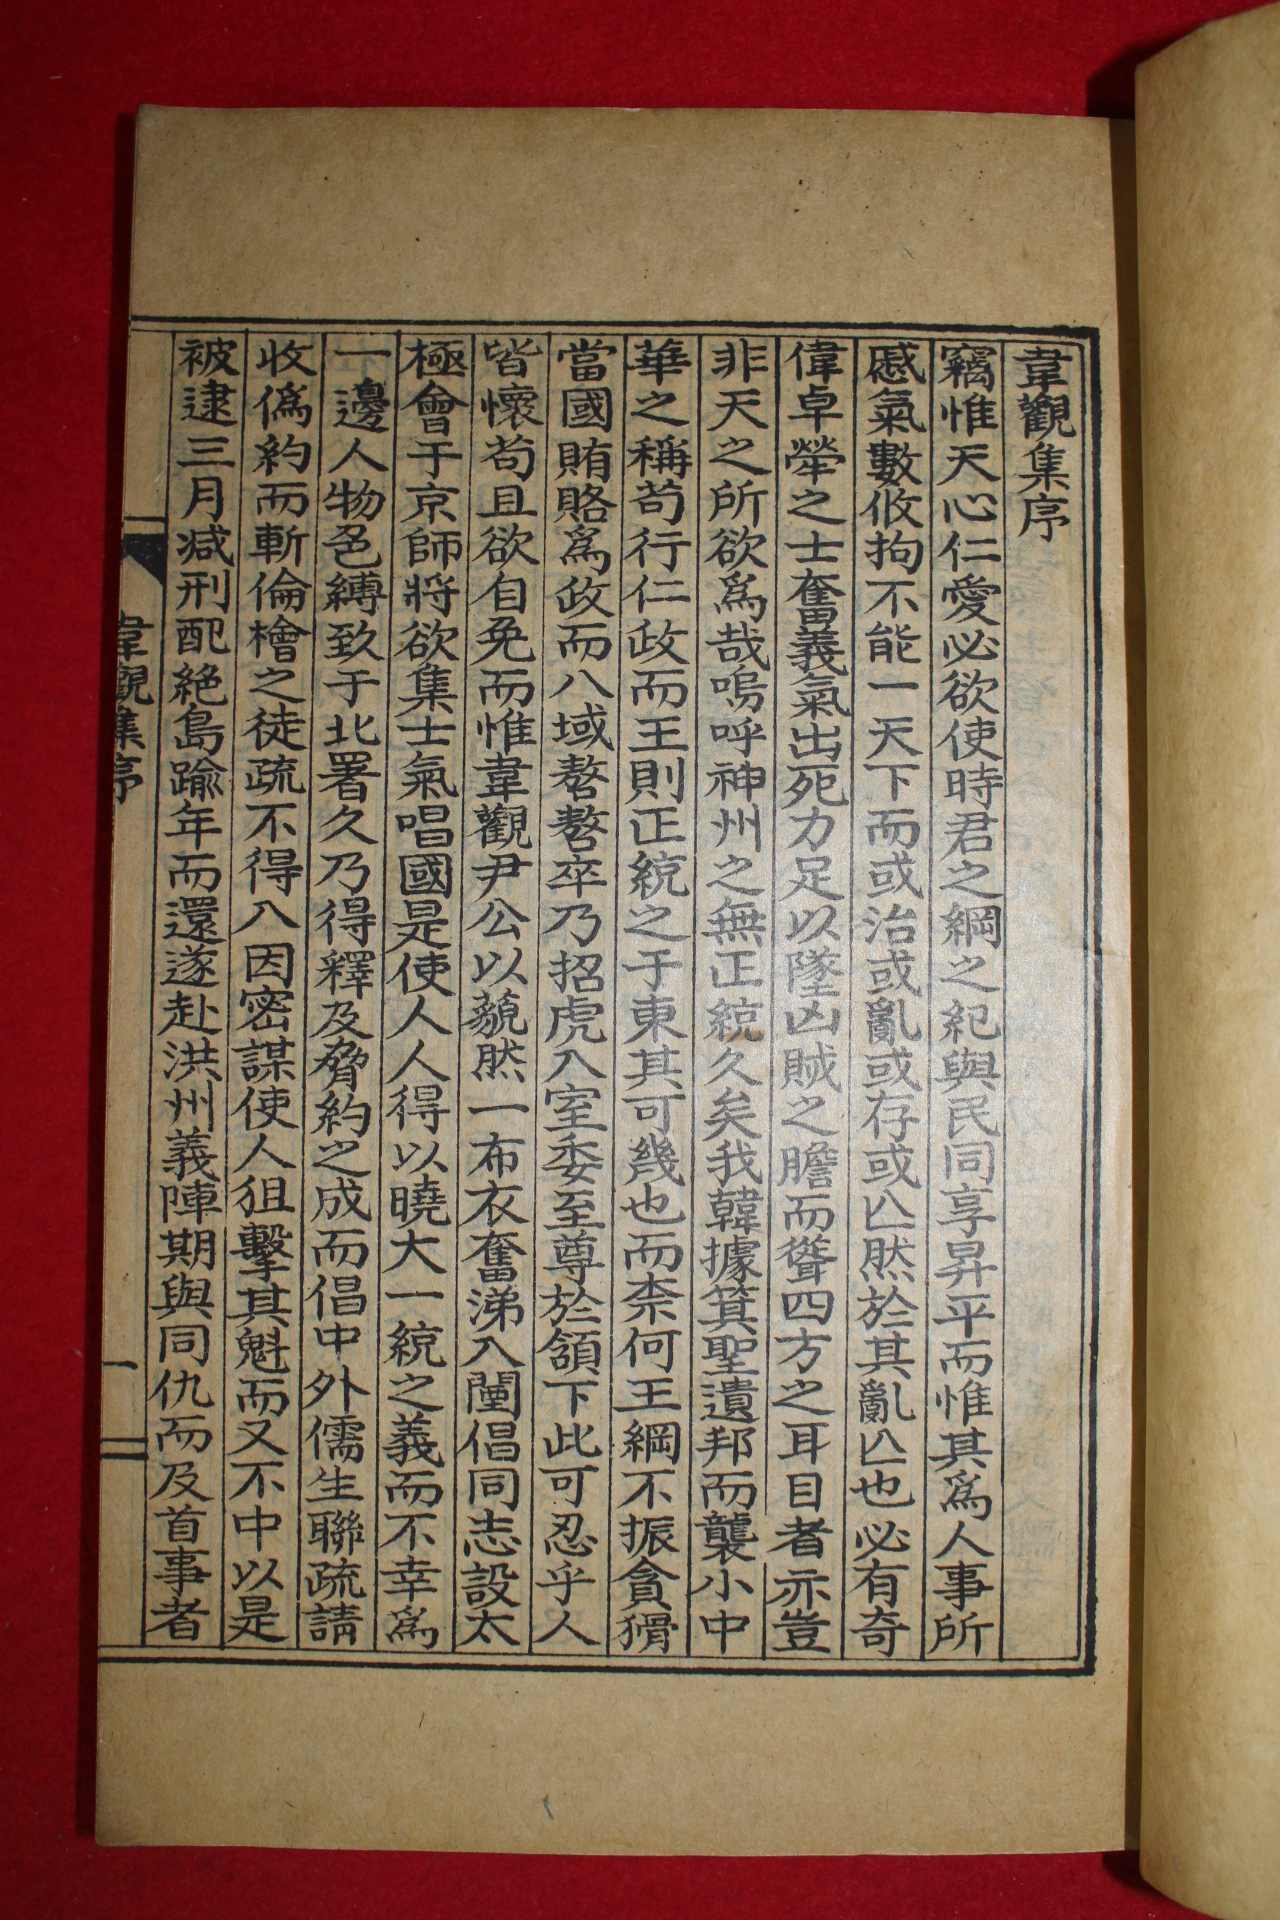 韋觀集序
竊惟天心仁愛必欲使時君之綱之紀與民同享昇平而惟其爲人事所
慼氣數攸拘不能一天下而或治或亂或存或亾然於其亂亾也必有奇
偉卓犖之士奮義氣出死力足以墜凶賊之膽而聳四方之耳目者亦豈
非天之所欲爲哉嗚呼神州之無正統久矣我韓據箕聖遺邦而襲小中
華之稱苟行仁政而王則正統之于東其可幾也而柰何王綱不振貪猾
當國賄賂爲政而八域嗸嗸卒乃招虎入室委至尊於頷下此可忍乎人
皆懷苟且欲自免而惟韋觀尹公以藐然一布衣奮涕入闉倡同志設太
極會于京師將欲集士氣唱國是使人人得以曉大一統之義而不幸爲
一邊人物色縛致于北署久乃得釋及脅約之成而倡中外儒生聯疏請
收僞約而斬倫檜之徒疏不得入因密謀使人狙擊其魁而又不中以是
被逮三月減刑配絶島踰年而還遂赴洪州義陣期與同仇而及首事者
韋觀集序
一